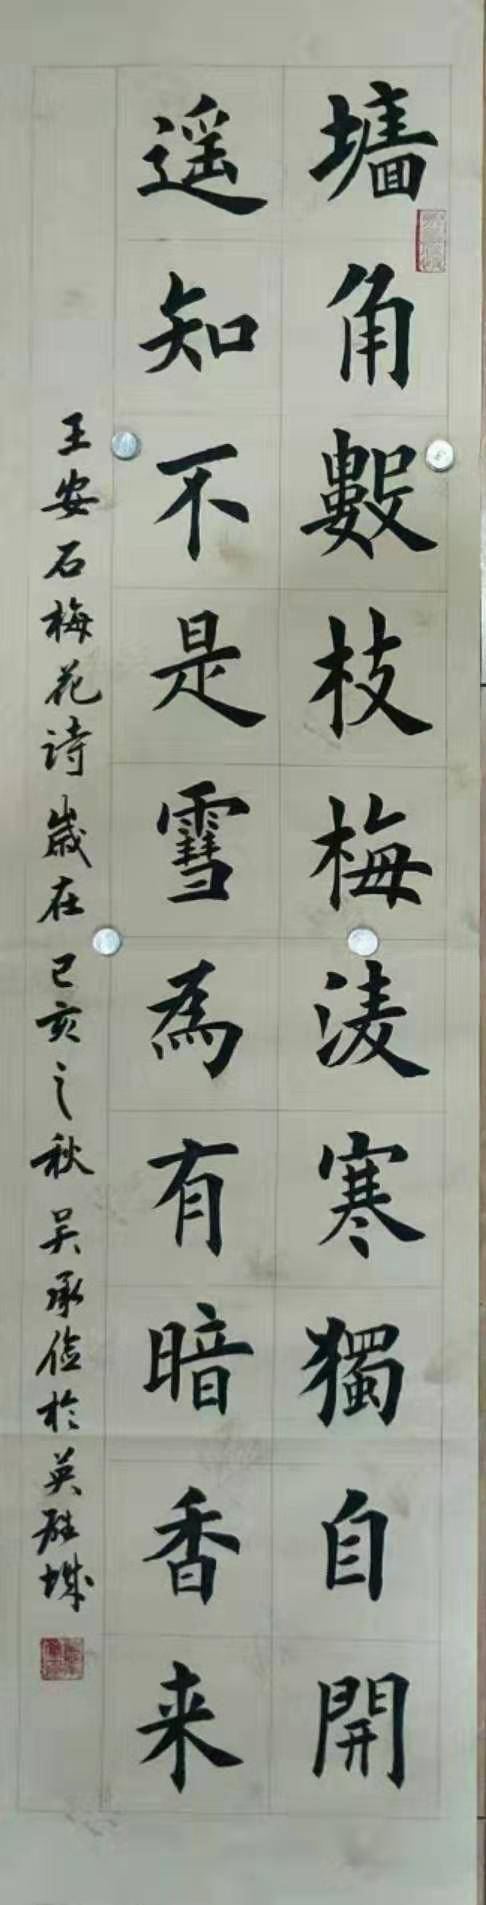 墙角數枝梅淩寒獨自開
遥知不是雪為有暗香来
王安石梅花诗歲在己亥之秋吴承俭於英雄城